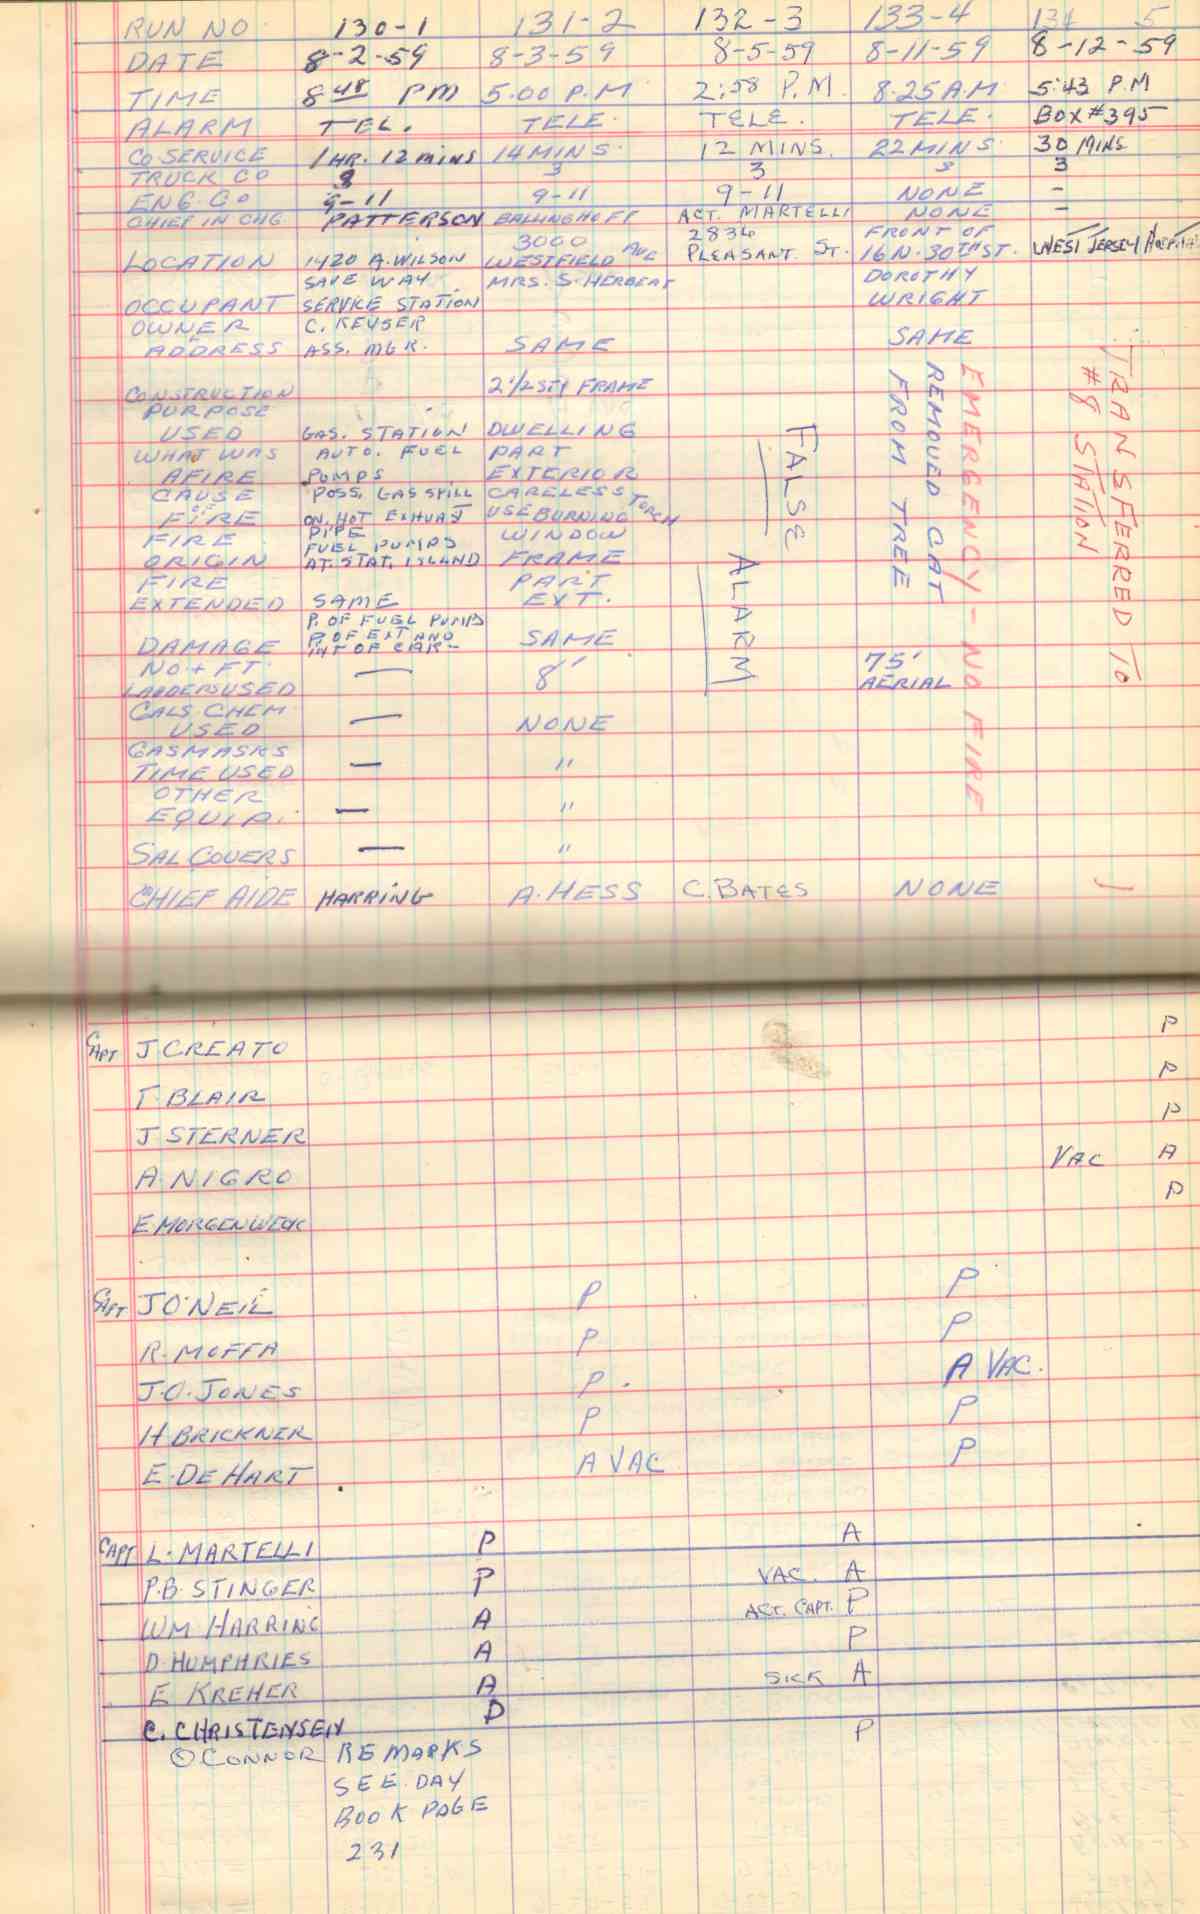 RUN NO 130-1 131-2 132-3 133-4 134 5
DATE 8-2-59 8-3-59 8-5-59 8-11-59 8-12-59
TIME 8 48 PM 5.00 P.M 2:58 P.M. 8.25 A.M 5:43 P.M
ALARM TEL. TELE. TELE. TELE. BOX #395
CO SERVICE 1 HR. 12 MINS 14 MINS. 12 MINS. 22 MINS. 30 MINS
TRUCK CO 3 3 3 3 3
ENG. CO 9-11 9-11 9-11 NONE -
CHIEF IN CHG PATTERSON BALLINGHOFF ACT. MARTELLI NONE -
3000 2836 FRONT OF
LOCATION 1420 A. WILSON WESTFIELD AVE PLEASANT. ST. 16 N. 30TH ST. WEST JERSEY HOSPITAL
SAVE WAY MRS. S. HERBERT DOROTHY
OCCUPANT SERVICE STATION WRIGHT
OWNER C. KEYSER
ADDRESS ASS. MGR. SAME SAME
CONSTRUCTION 2 1/2 STY FRAME
PURPOSE
USED GAS. STATION DWELLING
WHAT WAS AUTO. FUEL PART
AFIRE PUMPS EXTERIOR
CAUSE POSS. GAS SPILL CARELESS
OF
FIRE ON HOT EXHUAST USE BURNING TORCH
FIRE PIPE WINDOW
FUEL PUMPS
ORIGIN AT. STAT. ISLAND FRAME
FIRE PART
EXTENDED SAME EXT.
P. OF FUEL PUMPS
P. OF EXT AND
DAMAGE INT OF CAR- SAME
NO + FT. — 8' 75'
LADDERS USED AERIAL
GALS. CHEM
USED — NONE
GAS MASKS
TIME USED — "
OTHER
EQUIP. — "
SAL COVERS — "
CHIEF AIDE HARRING A. HESS C. BATES NONE
FALSE ALARM
REMOVED CAT
FROM TREE
EMERGENCY - NO FIRE
TRANSFERRED TO
#8 STATION
CAPT J CREATO P
T. BLAIR P
J STERNER P
A. NIGRO VAC A
E MORGENWECK P
CAPT J O'NEIL P P
R. MOFFA P P
J. O. JONES P. A VAC.
H BRICKNER P P
E. DE HART A VAC P
CAPT L. MARTELLI P A
P. B. STINGER P VAC. A
WM HARRING A ACT. CAPT. P
D. HUMPHRIES A P
E KREHER A SICK A
C. CHRISTENSEN P P
O CONNOR REMARKS
SEE DAY
BOOK PAGE
231